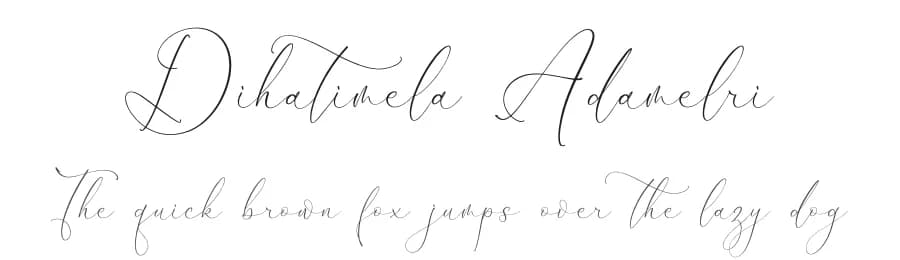 Dihatimela Adamelri
The quick brown fox jumps over the lazy dog